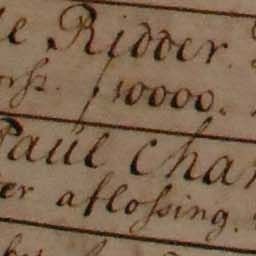 de Ridder
ƒ 10000.
Paul Char
er aflossing.